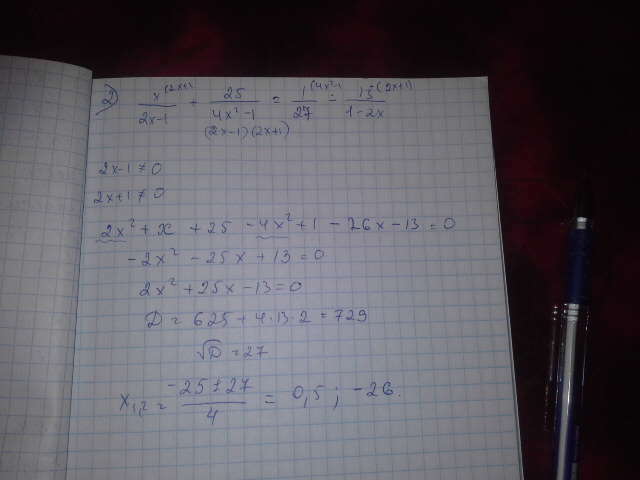 2) x^(2x+1)/(2x-1) + 25/(4x²-1) = 1^(4x²-1)/27 - 13^-(2x+1)/(1-2x)
(2x-1)(2x+1)
2x-1≠0
2x+1≠0
2x²+x+25-4x²+1-26x-13=0
-2x²-25x+13=0
2x²+25x-13=0
D=625+4·13·2=729
√D=27
x₁,₂=(-25±27)/4=0,5; -26.